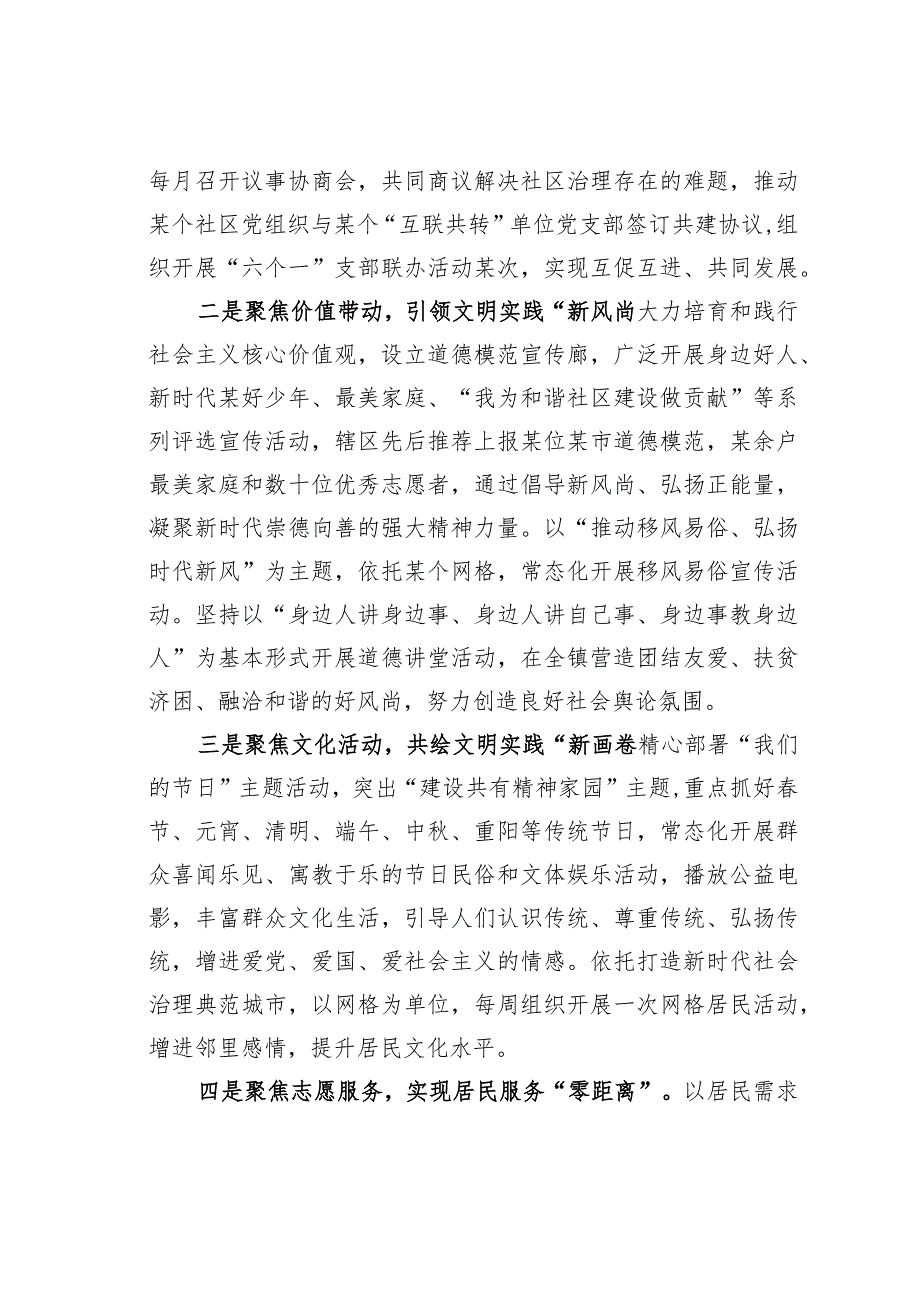 每月召开议事协商会，共同商议解决社区治理存在的难题，推动
某个社区党组织与某个“互联共转”单位党支部签订共建协议,组
织开展“六个一”支部联办活动某次，实现互促互进、共同发展。
二是聚焦价值带动，引领文明实践“新风尚大力培育和践行
社会主义核心价值观，设立道德模范宣传廊，广泛开展身边好人、
新时代某好少年、最美家庭、“我为和谐社区建设做贡献”等系
列评选宣传活动，辖区先后推荐上报某位某市道德模范，某余户
最美家庭和数十位优秀志愿者，通过倡导新风尚、弘扬正能量，
凝聚新时代崇德向善的强大精神力量。以“推动移风易俗、弘扬
时代新风”为主题，依托某个网格，常态化开展移风易俗宣传活
动。坚持以“身边人讲身边事、身边人讲自己事、身边事教身边
人”为基本形式开展道德讲堂活动，在全镇营造团结友爱、扶贫
济困、融洽和谐的好风尚，努力创造良好社会舆论氛围。
三是聚焦文化活动，共绘文明实践“新画卷精心部署“我们
的节日”主题活动，突出“建设共有精神家园”主题,重点抓好春
节、元宵、清明、端午、中秋、重阳等传统节日，常态化开展群
众喜闻乐见、寓教于乐的节日民俗和文体娱乐活动，播放公益电
影，丰富群众文化生活，引导人们认识传统、尊重传统、弘扬传
统，增进爱党、爱国、爱社会主义的情感。依托打造新时代社会
治理典范城市，以网格为单位，每周组织开展一次网格居民活动，
增进邻里感情，提升居民文化水平。
四是聚焦志愿服务，实现居民服务“零距离”。以居民需求